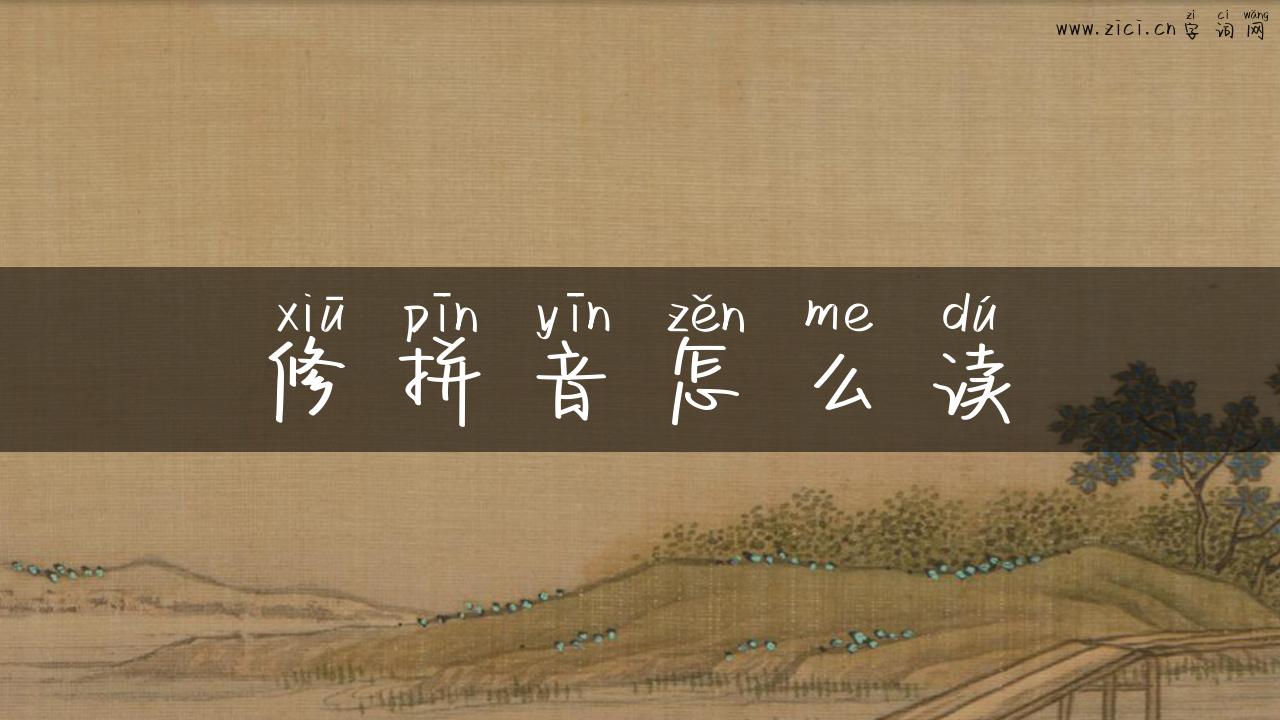 zì cí wǎng
www.zici.cn字词网
xiū pīn yīn zěn me dú
修拼音怎么读